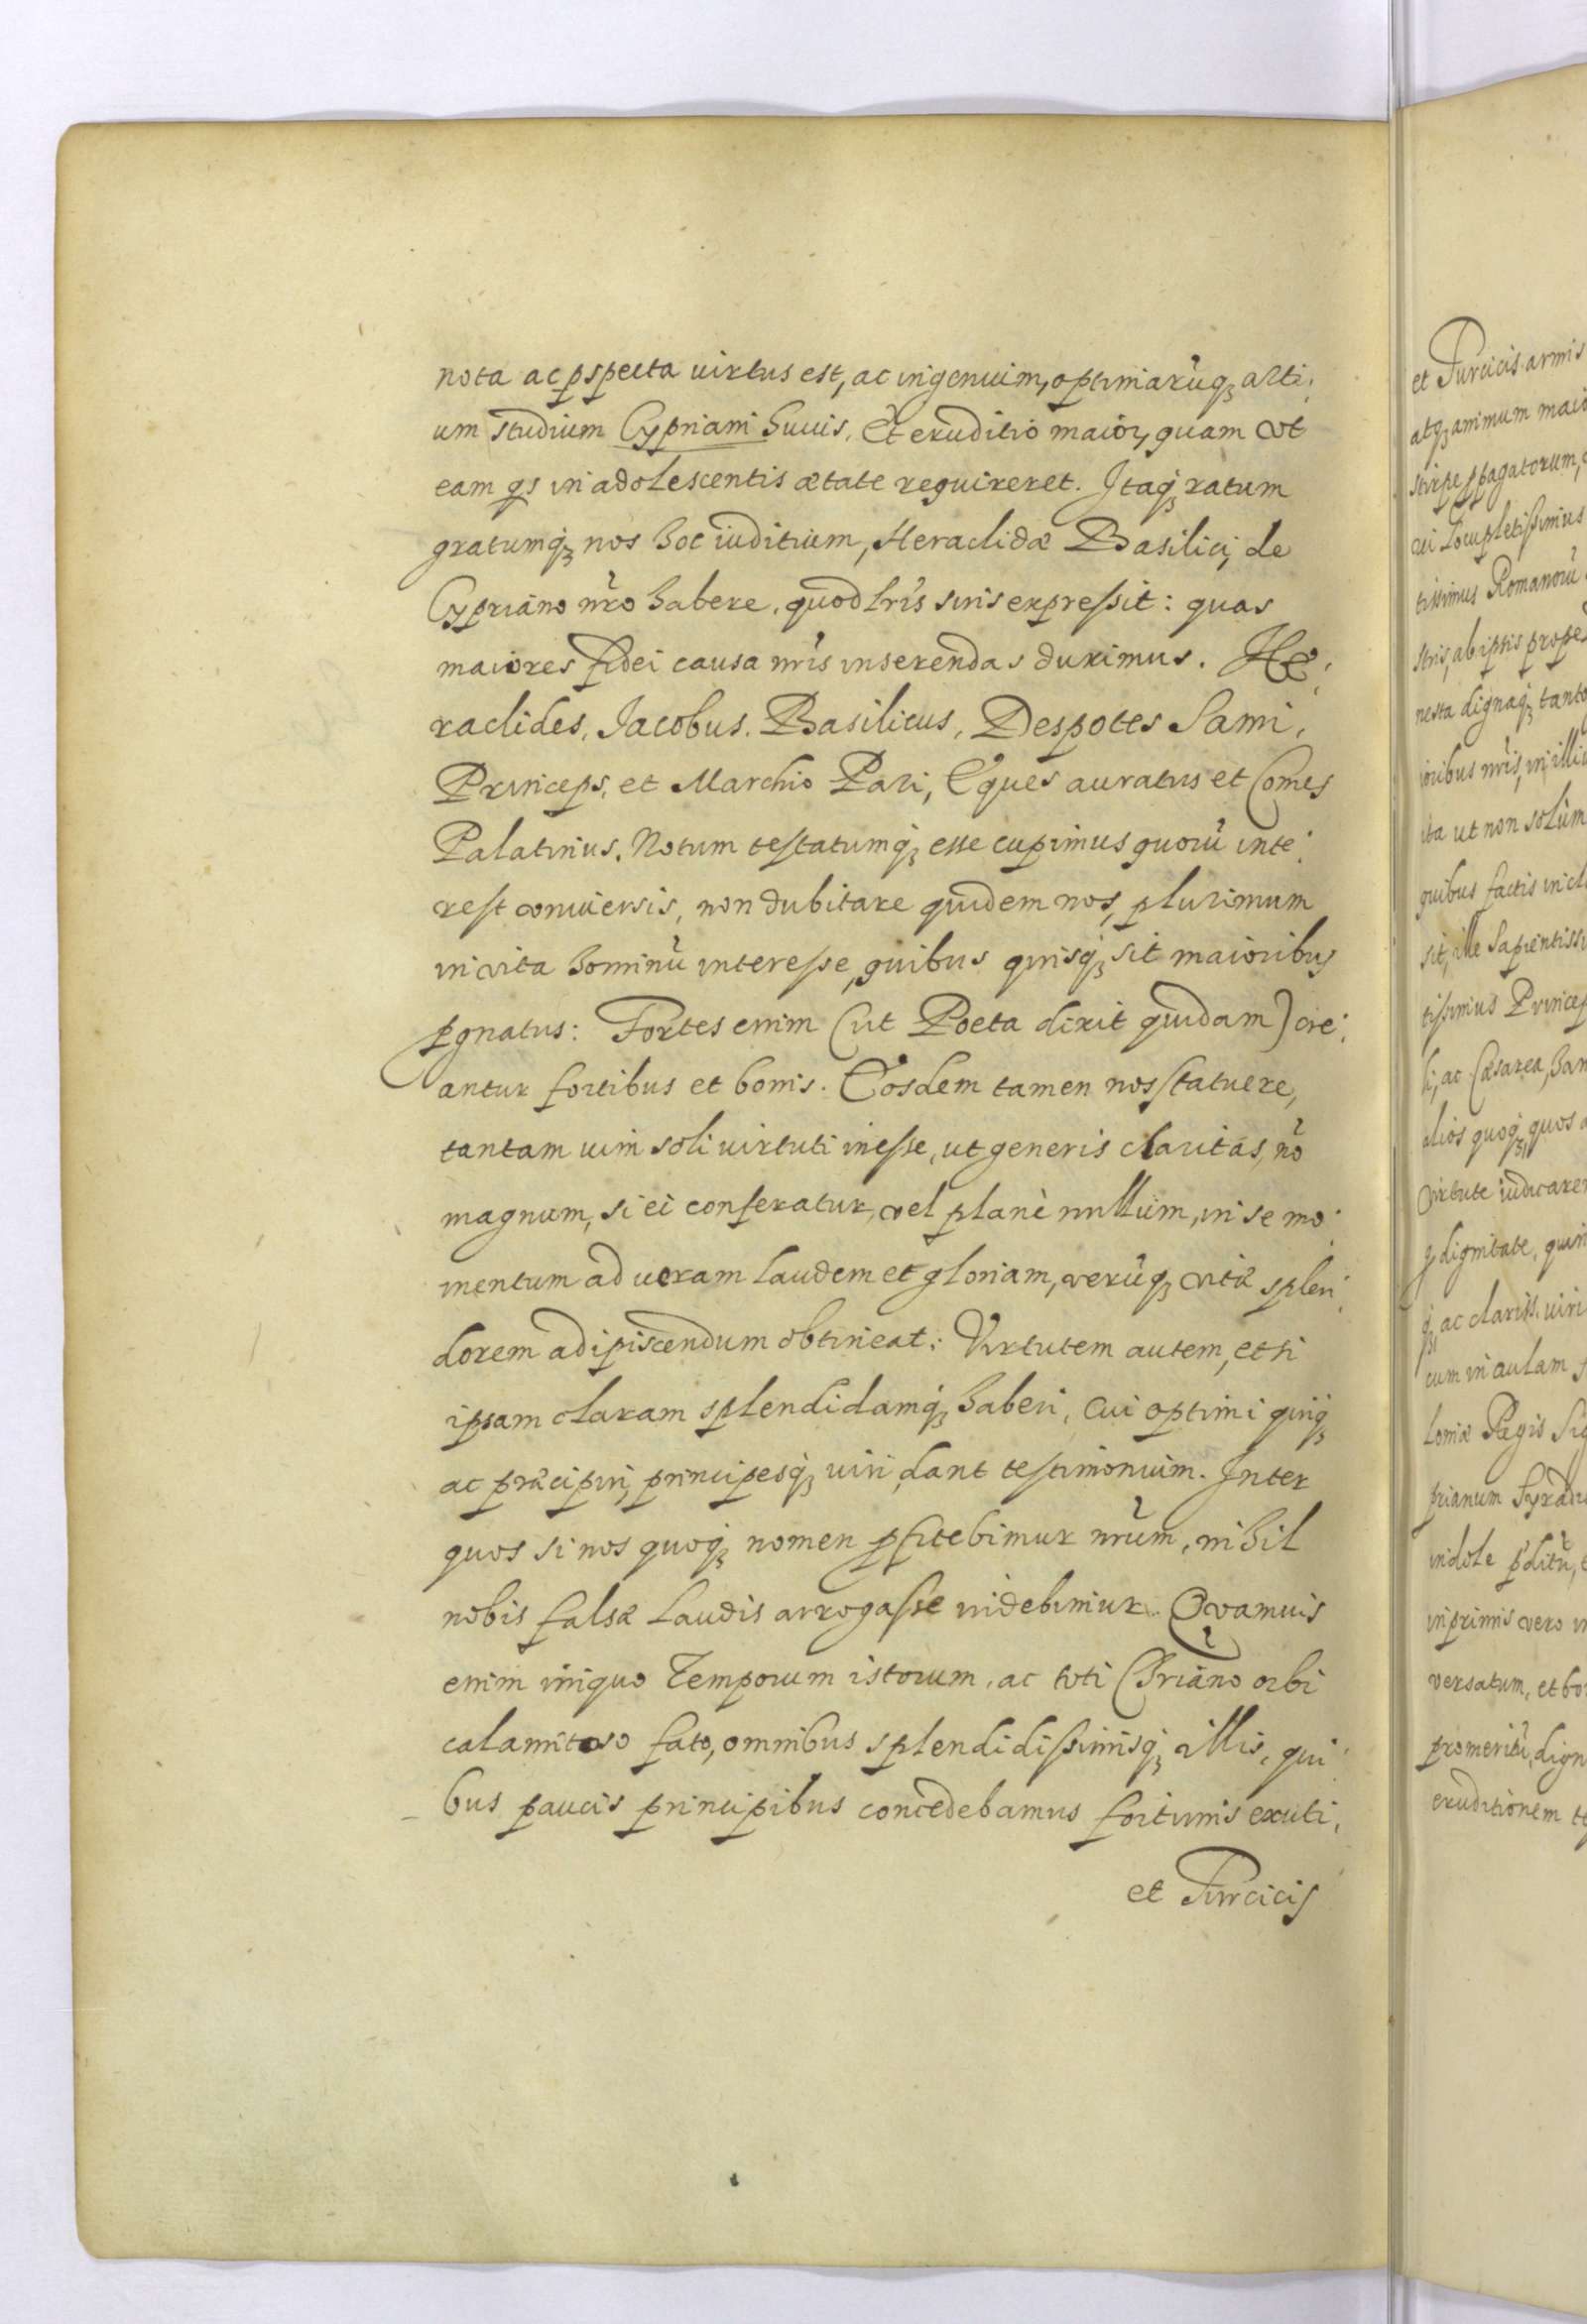 nota ac pspecta uirtus est, ac ingenuim, optimarũq; arti,
um studium Cypriani huius, Et eruditio maior, quam vt
eam qs in adolescentis ætate requireret. Itaq; ratum
gratumq; nos hoc iuditium, Heraclidæ Basilici, de
Cypriano nr̃o habere, quod lr̃is suis expressit: quas
maiores fidei causa nr̃is inserendas duximus. He,
raclides, Jacobus. Basilicus, Despotes Sami,
Princeps, et Marchio Pari, Eques auratus et Comes
Palatinus. Notum testatumq; esse cupimus quorũ inte,
rest vniuersis, non dubitare quidem nos, plurimum
in vita hominũ interesse, quibus quisq; sit maioribus
pgnatus: Fortes enim (ut Poeta dixit quidam) cre,
antur fortibus et bonis. Eosdem tamen nos statuere,
tantam uim soli uirtuti inesse, ut generis claritas, nõ
magnum, si ei conferatur, vel planè nullum, in se mo,
mentum ad ueram laudem et gloriam, verũq; vitæ splen,
dorem adipiscendum obtineat: Virtutem autem, et si
ipsam claram splendidamq; haberi, cui optimi quiq;
ac præcipui, principesq; uiri, dant testimonium. Inter
quos si nos quoq; nomen pfitebimur nr̃um, nihil
nobis falsæ laudis arrogasse uidebimur. Quamuis
enim iniquo Temporum istorum, ac toti Chr̃iano orbi
calamitoso fato, omnibus splendidissimisq; illis, qui
bus paucis principibus concedebamus fortunis exuti,
et Turcicis
et Turcicis armis
atq; animum maio
stirpe ppagatorum,
rei Locupletissimus
tissimus Romanorũ
stris, ab ipsis prope
nesta dignaq; tanto
ioribus nr̃is, in illi
ita ut non solùm
quibus factis incl
sit, ille Sapientiss
tissimus Princep
li, ac Cæsarea, han
alios quoq; quos a
virtute iudicare
q dignitate, quin
q; ac clariss. uiri
cum in aulam
loniæ Regis Sig
prianum Syradi
indole pditũ,
inprimis vero in
versatum, et bo
promeritũ, dign
eruditionem te